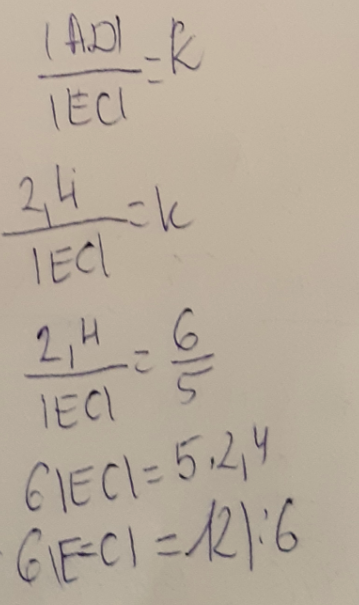 |AD|
/|EC| = k
2,4
/|EC| = k
2,4/|EC| = 6/5
6|EC| = 5·2,4
6|EC| = 12 |:6